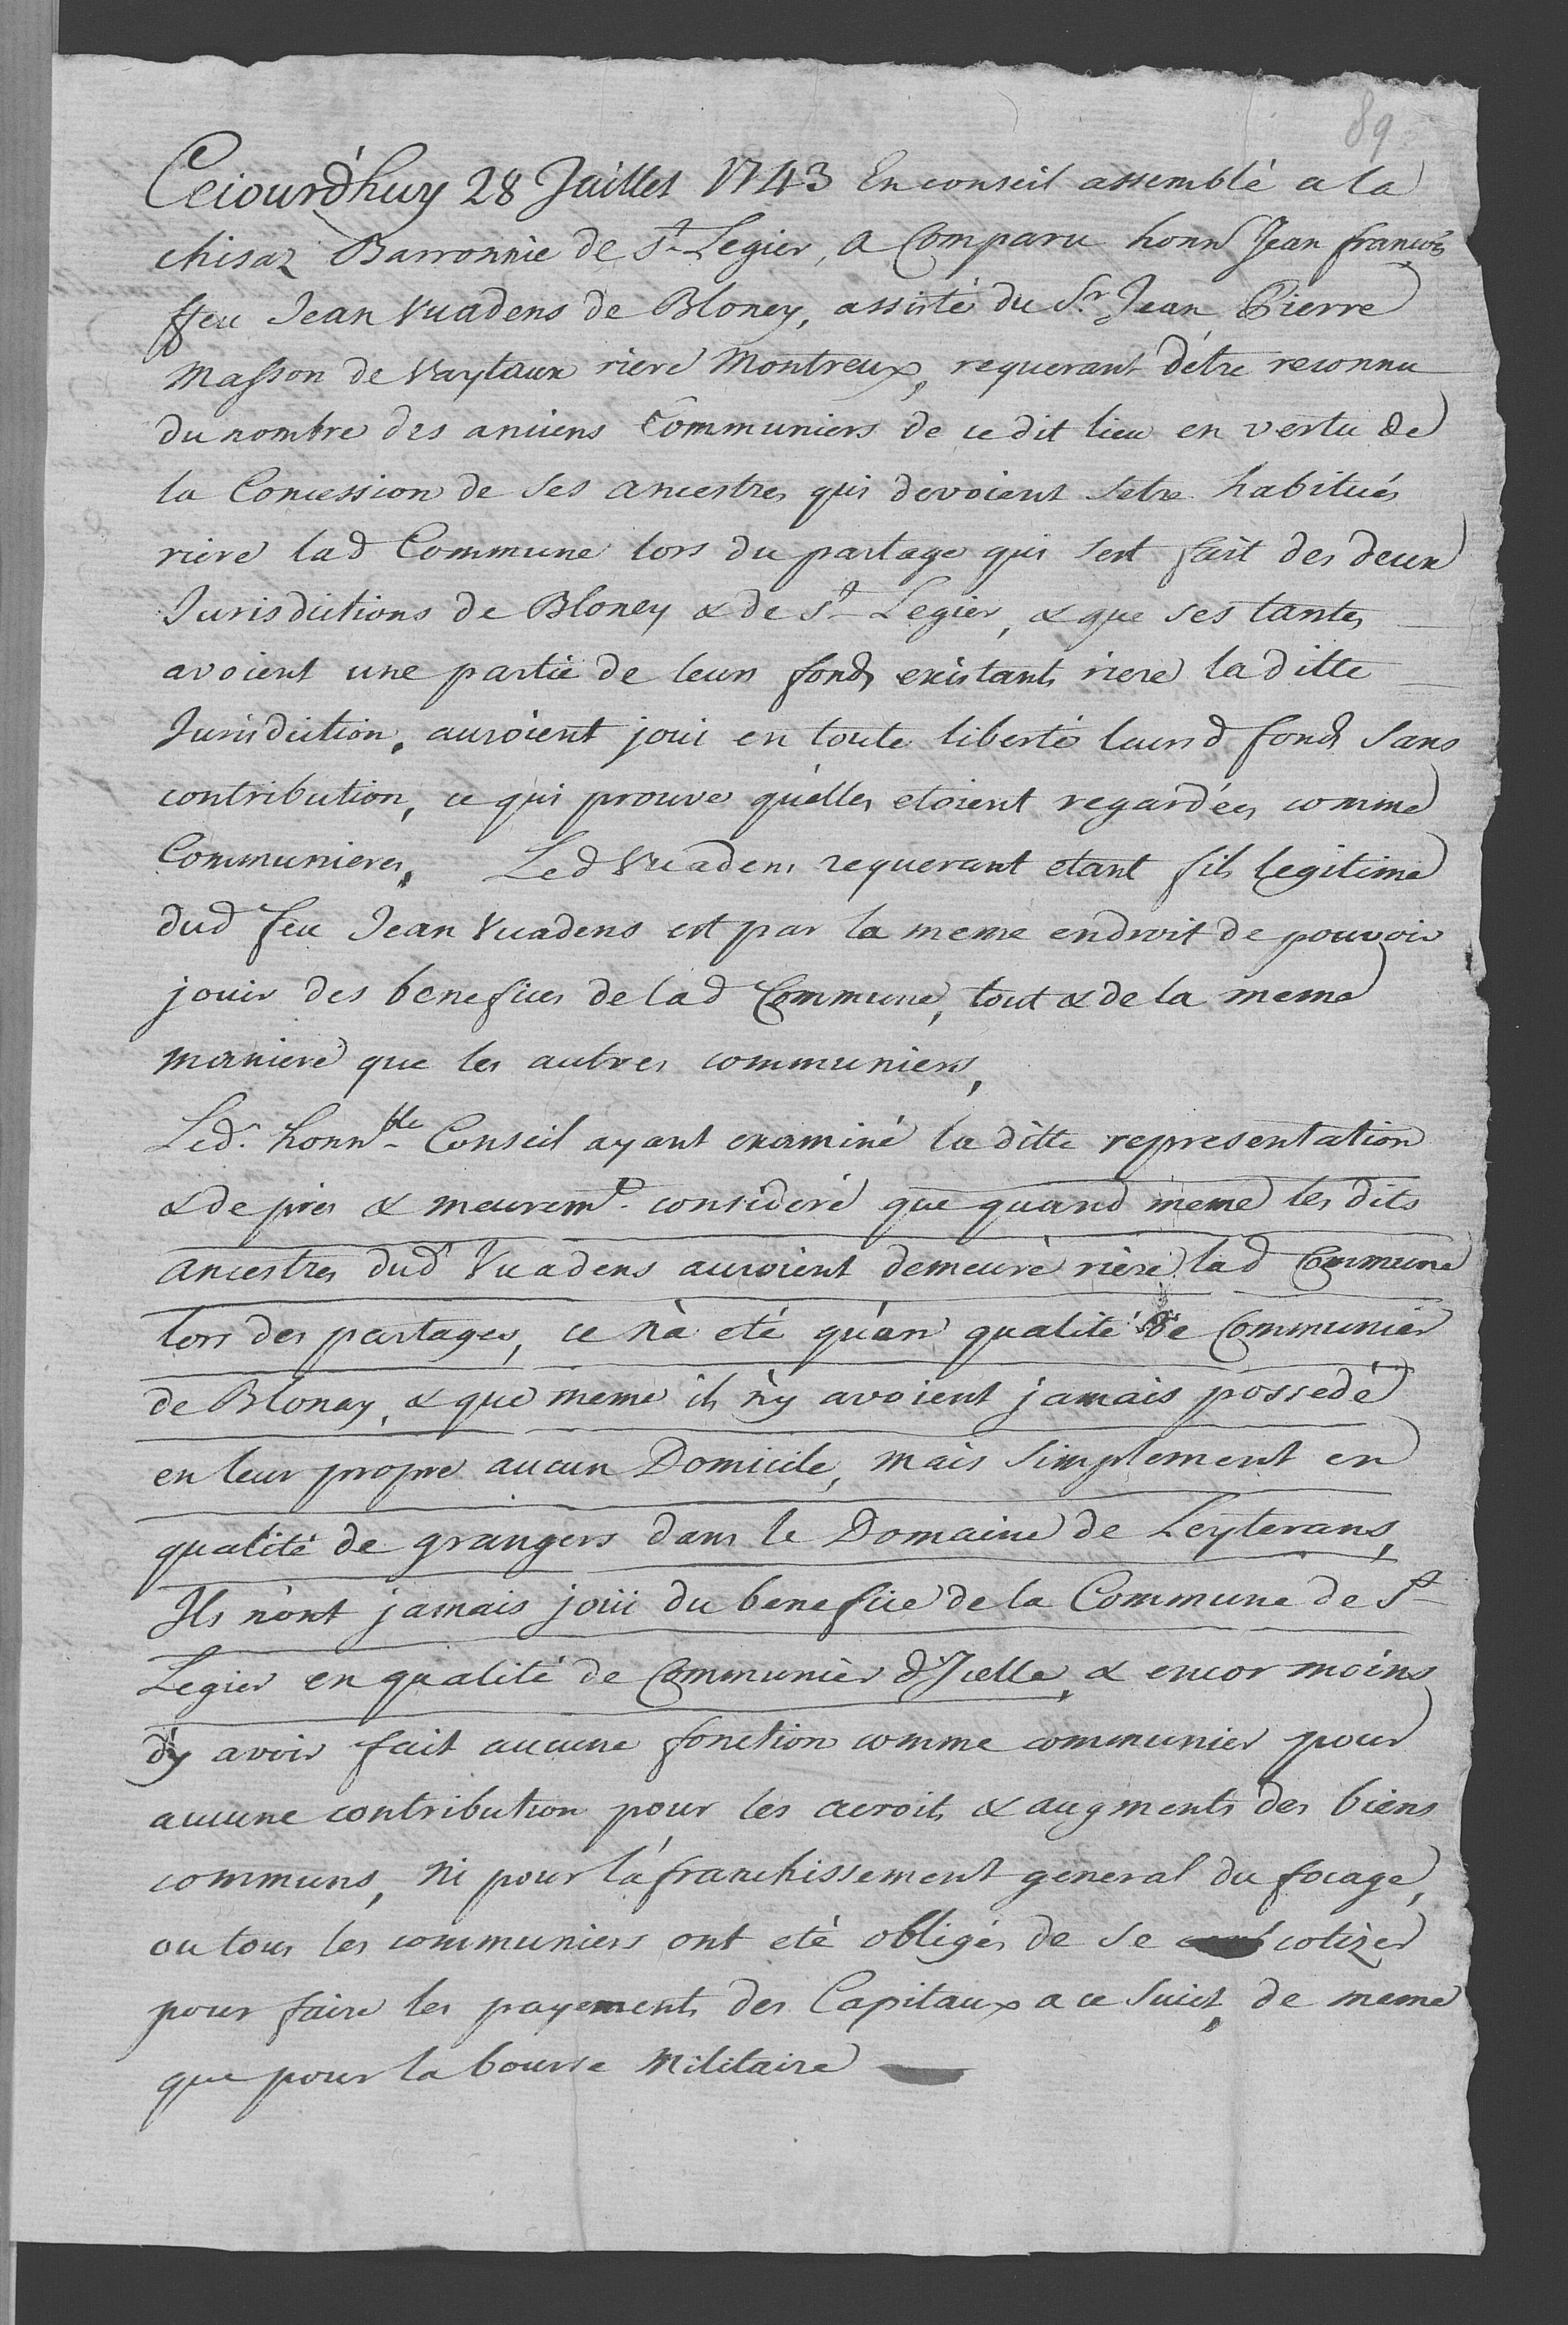 89
Cejourd'huy 28 Juillet 1743 En conseil assemblé a la
chisaz Barronnie de St Legier, a Comparu honn Jean francois
ffeu Jean Vuadens de Bloney, assisté du Sr. Jean Pierre
Masson de Vaytaux riere Montreux, requerant d'étre reconnu
du nombre des anciens Communiers de ce dit lieu en vertu de
la Concession de ses ancestres qui devoient setre habitués
riere lad Commune lors du partage qui sest fait des deux
Jurisdictions de Bloney & de St Legier, & que ses tantes
avoient une partie de leurs fonds existants riere la ditte
Jurisdiction, auroient joui en toute liberté leursd fonds sans
contribution, ce qui prouve qu'elles etoient regardées comme
Communieres, Led Vuadens requerant etant fils legitime
dud feu Jean Vuadens est par la meme endroit de pouvoir
jouir des benefices de lad Commune, tout & de la meme
maniere que les autres communiers,
Led. honnble Conseil ayant examiné la ditte representation
& de pres & meuremt. consideré que quand meme les dits
ancestres dud Vuadens auroient demeuré riere lad Commune
lors des partages, ce n'a eté qu'an qualité de Communier
de Blonay, & que meme ils n'y avoient jamais possedé
en leur propre aucun Domicile, mais simplement en
qualité de grangers dans le Domaine de Leyterans,
Ils n'ont jamais joüi du benefice de la Commune de St
Legier en qualité de Communier d'Icelle, & encor moins
d'y avoir fait aucune fonction comme communier pour
aucune contribution pour les acroits & augments des biens
communs, ni pour l'afranchissement general du focage,
ou tous les communiers ont eté obligés de se cotizer
pour faire les payements des Capitaux a ce suiet, de meme
que pour la bourse Militaire